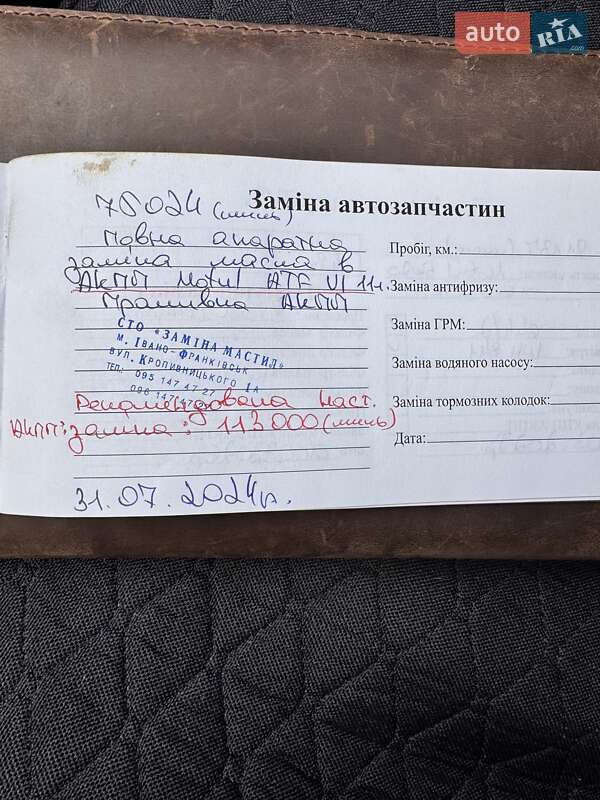 auto RIA.com
Заміна автозапчастин
78024 (миль)
Повна апаратна
заміна масла в
АКПП Motul ATF VI 11л.
Прошивка АКПП
СТО «ЗАМІНА МАСТИЛ»
М. ІВАНО-ФРАНКІВСЬК
ВУЛ. КРОПИВНИЦЬКОГО 1А
ТЕЛ.: 095 147 47 27
096 147
Рекомендована наст.
АКПП: заміна: 113000 (миль)
31.07.2024р.
Пробіг, км.:
Заміна антифризу:
Заміна ГРМ:
Заміна водяного насосу:
Заміна тормозних колодок:
Дата: